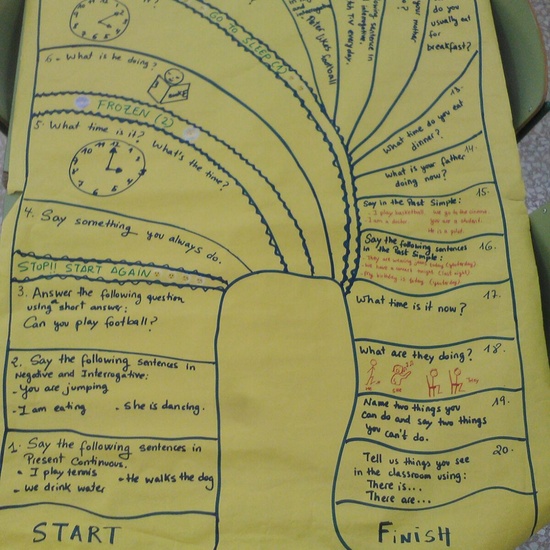 START
1. Say the following
sentences in
Present Continuous.
- I play tennis
- He walks the dog
- we drink water
2. Say the following sentences in
Negative and Interrogative:
- You are jumping
- I am eating
- She is dancing.
3. Answer the following question
using a short answer:
Can you play football?
STOP!! START AGAIN
4. Say something you always do.
5. What time is it? What's the time?
12
3
6
9
FROZEN (2)
6. What is he doing?
GO TO SLEEP
Peter likes football
TV everyday.
sentence in
do you
usually eat
for
breakfast?
13.
What time do you eat
dinner?
14.
What is your father
doing now?
15.
Say in the Past Simple:
- I play basketball.
we go to the cinema.
- I am a doctor.
you are a student.
He is a pilot.
16.
Say the following sentences
in the Past Simple:
- They are wearing jeans today (yesterday)
- we have a tennis (last night)
- My birthday is today (yesterday)
17.
What time is it now?
What are they doing? 18.
Name two things you 19.
can do and say two things
you can't do.
20.
Tell us things you see
in the classroom using:
There is...
There are...
FiNiSH